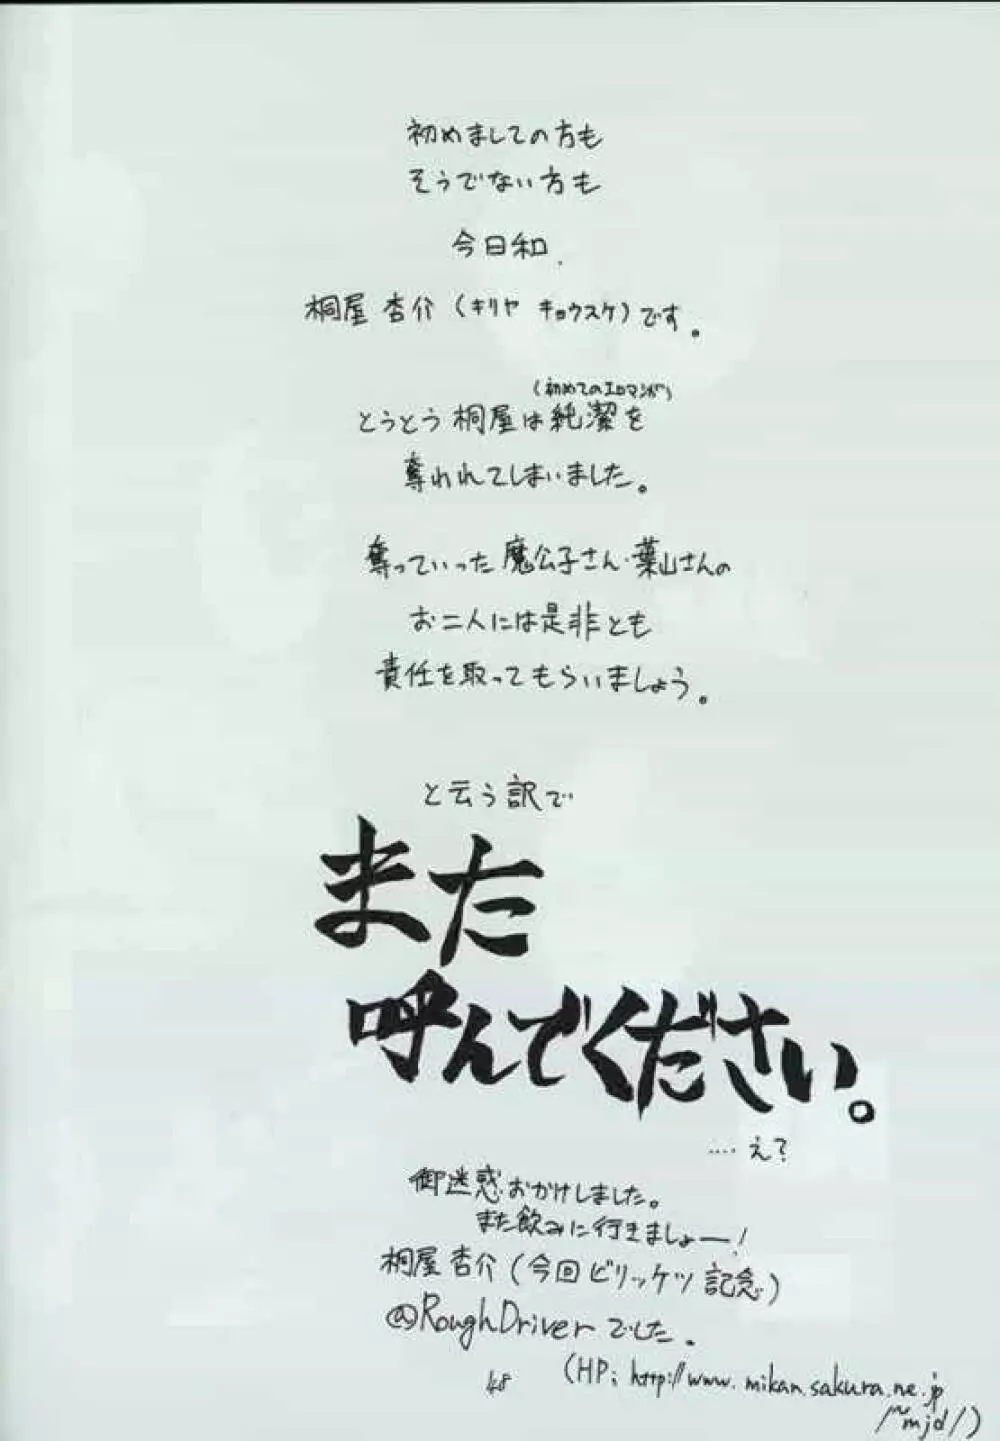 初めましての方も
そうでない方も
今日和.
桐屋 杏介(キリヤ キョウスケ)です。
(初めてのエロマンガ)
とうとう桐屋は純潔を
奪われてしまいました。
奪っていった魔公子さん・葉山さんの
お二人には是非とも
責任を取ってもらいましょう。
と云う訳で
また
呼んでください。
‥‥え?
御迷惑おかけしました。
また飲みに行きましょー!
桐屋 杏介(今回ビリッケツ記念)
@RoughDriverでした。
(HP; http://www.mikan.sakura.ne.jp
/~mjd/)
48